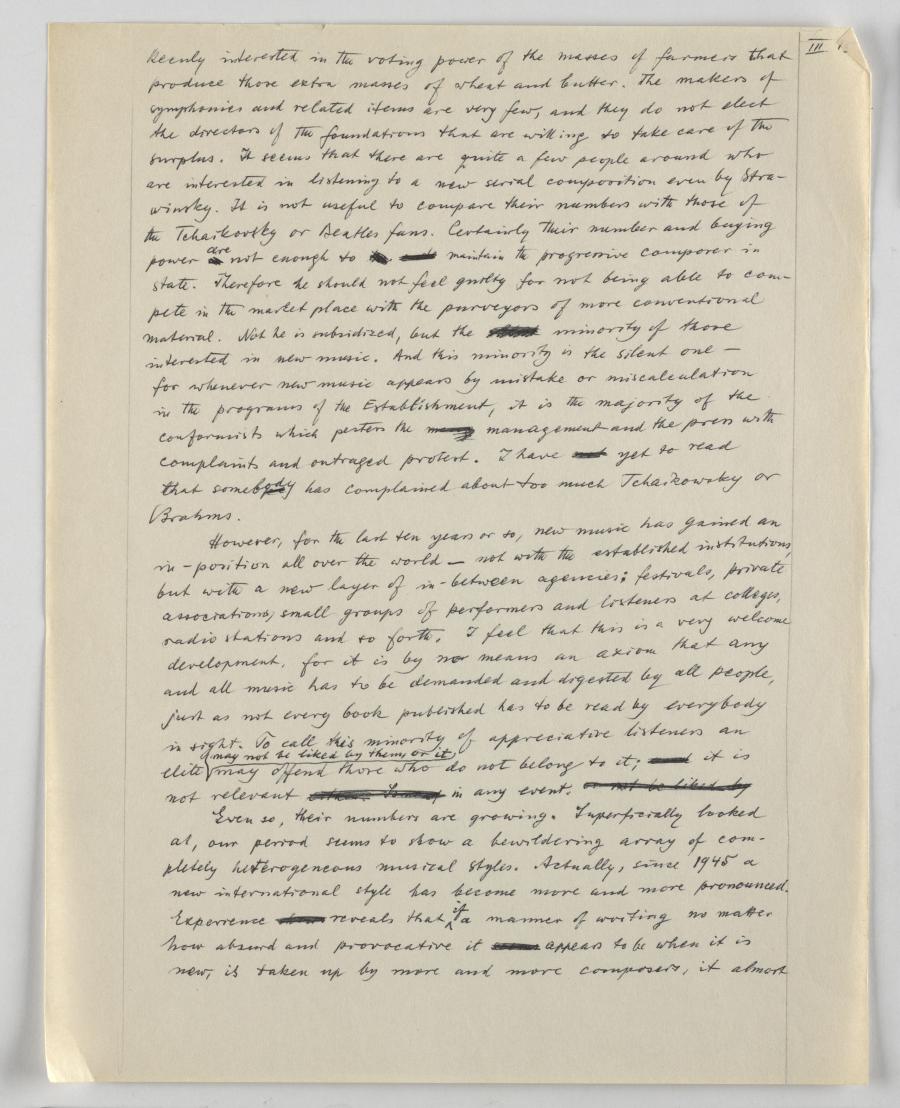 III
keenly interested in the voting power of the masses of farmers that
produce those extra masses of wheat and butter. The makers of
symphonies and related items are very few, and they do not elect
the directors of the foundations that are willing to take care of the
surplus. It seems that there are quite a few people around who
are interested in listening to a new serial composition even by Stra-
winsky. It is not useful to compare their numbers with those of
the Tchaikovsky or Beatles fans. Certainly their number and buying
power are not enough to maintain the progressive composer in
state. Therefore he should not feel guilty for not being able to com-
pete in the market place with the purveyors of more conventional
material. Not he is subsidized, but the minority of those
interested in new music. And this minority is the silent one —
for whenever new music appears by mistake or miscalculation
in the programs of the Establishment, it is the majority of the
conformists which pesters the management and the press with
complaints and outraged protest. I have yet to read
that somebody has complained about too much Tchaikowsky or
Brahms.
However, for the last ten years or so, new music has gained an
in-position all over the world — not with the established institutions,
but with a new layer of in-between agencies: festivals, private
associations, small groups of performers and listeners at colleges,
radio stations and so forth. I feel that this is a very welcome
development, for it is by no means an axiom that any
and all music has to be demanded and digested by all people,
just as not every book published has to be read by everybody
in sight. To call this minority of appreciative listeners an
may not be liked by them, or it
elite may offend those who do not belong to it; it is
not relevant in any event.
Even so, their numbers are growing. Superficially looked
at, our period seems to show a bewildering array of com-
pletely heterogeneous musical styles. Actually, since 1945 a
new international style has become more and more pronounced.
Experience reveals that if a manner of writing no matter
how absurd and provocative it appears to be when it is
new, is taken up by more and more composers, it almost